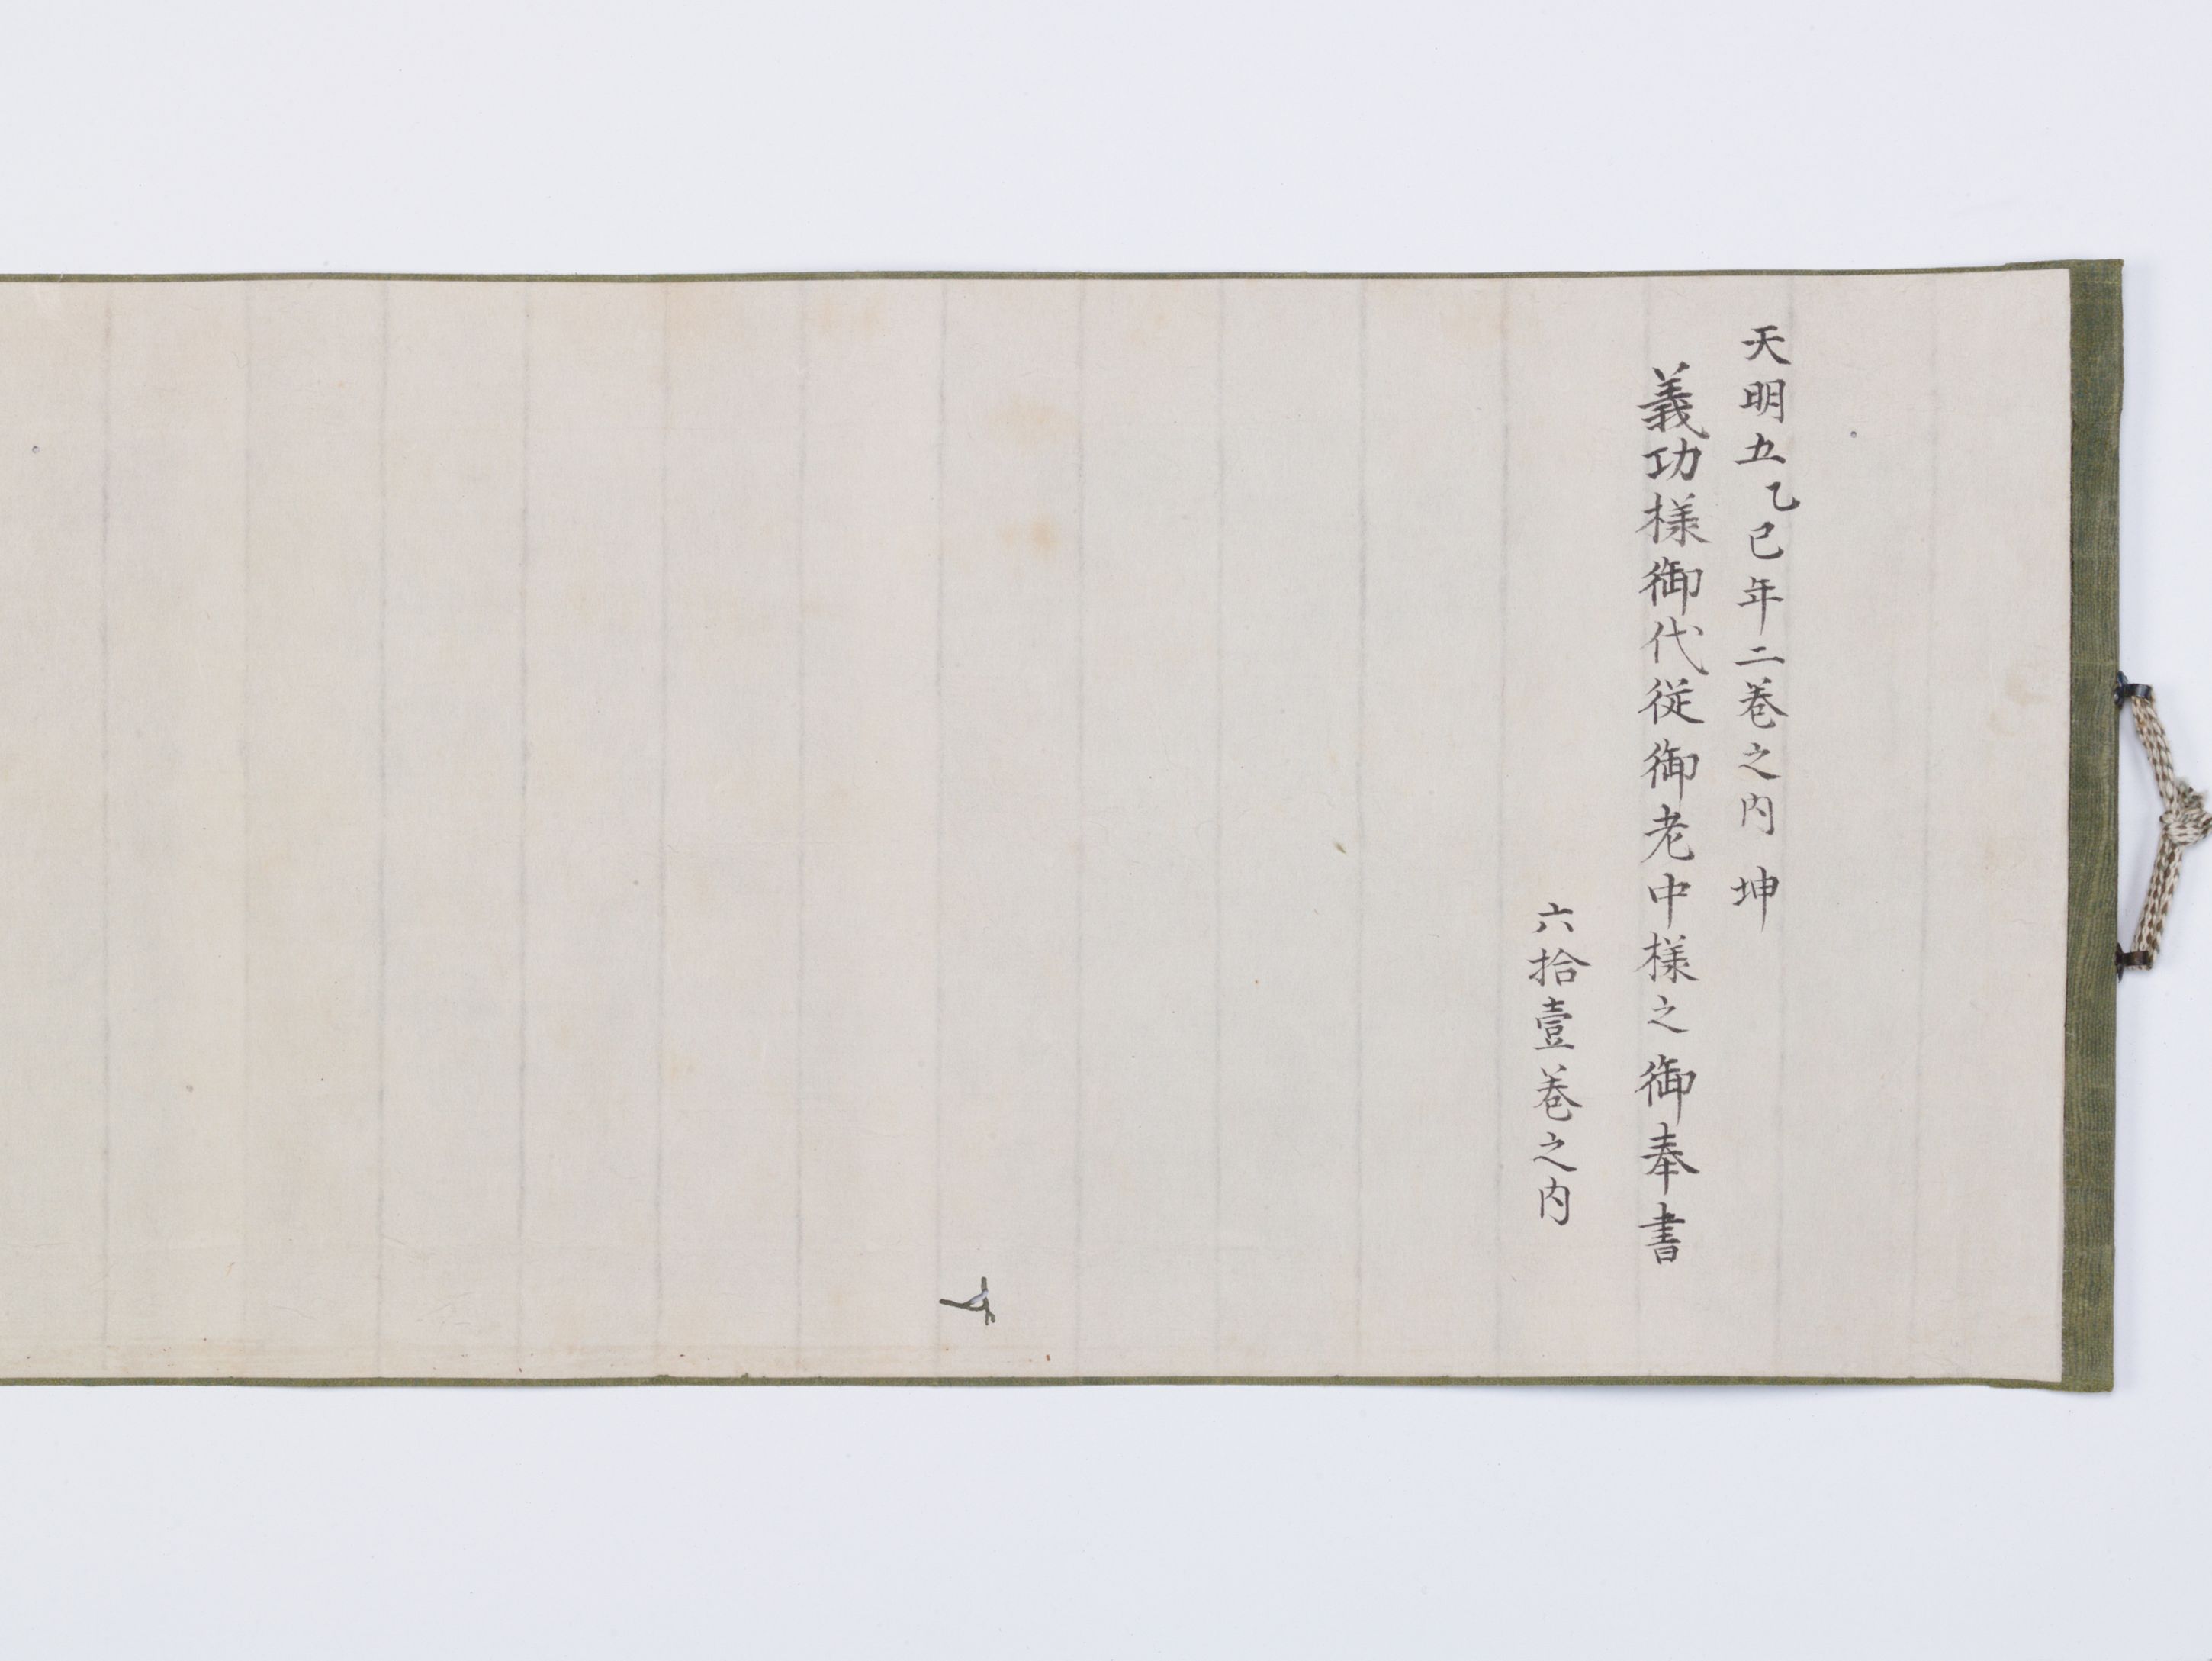 天明五乙巳年二巻之内 坤
義功様御代従御老中様之御奉書
六拾壹巻之内